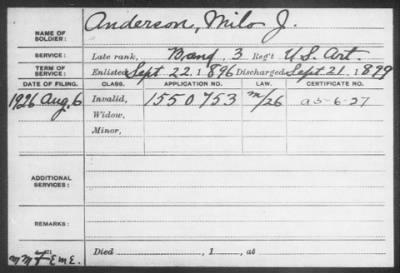 Anderson, Milo J.
NAME OF SOLDIER:
SERVICE: Late rank, Band, 3 Reg't U.S. Art.
TERM OF SERVICE: Enlisted Sept 22, 1896 Discharged Sept 21, 1899
DATE OF FILING. CLASS. APPLICATION NO. LAW. CERTIFICATE NO.
1926 Aug. 6 Invalid, 1550753 m/26 a5-6-27
Widow,
Minor,
ADDITIONAL SERVICES:
REMARKS:
Died , 1 , at
EME.